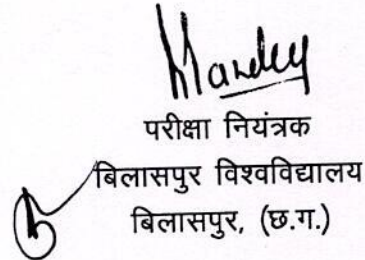 परीक्षा नियंत्रक
बिलासपुर विश्वविद्यालय
बिलासपुर, (छ.ग.)